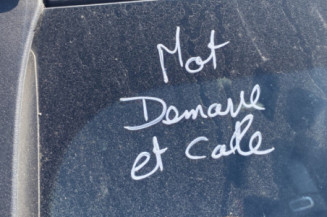 Mot
Demarre
et cale